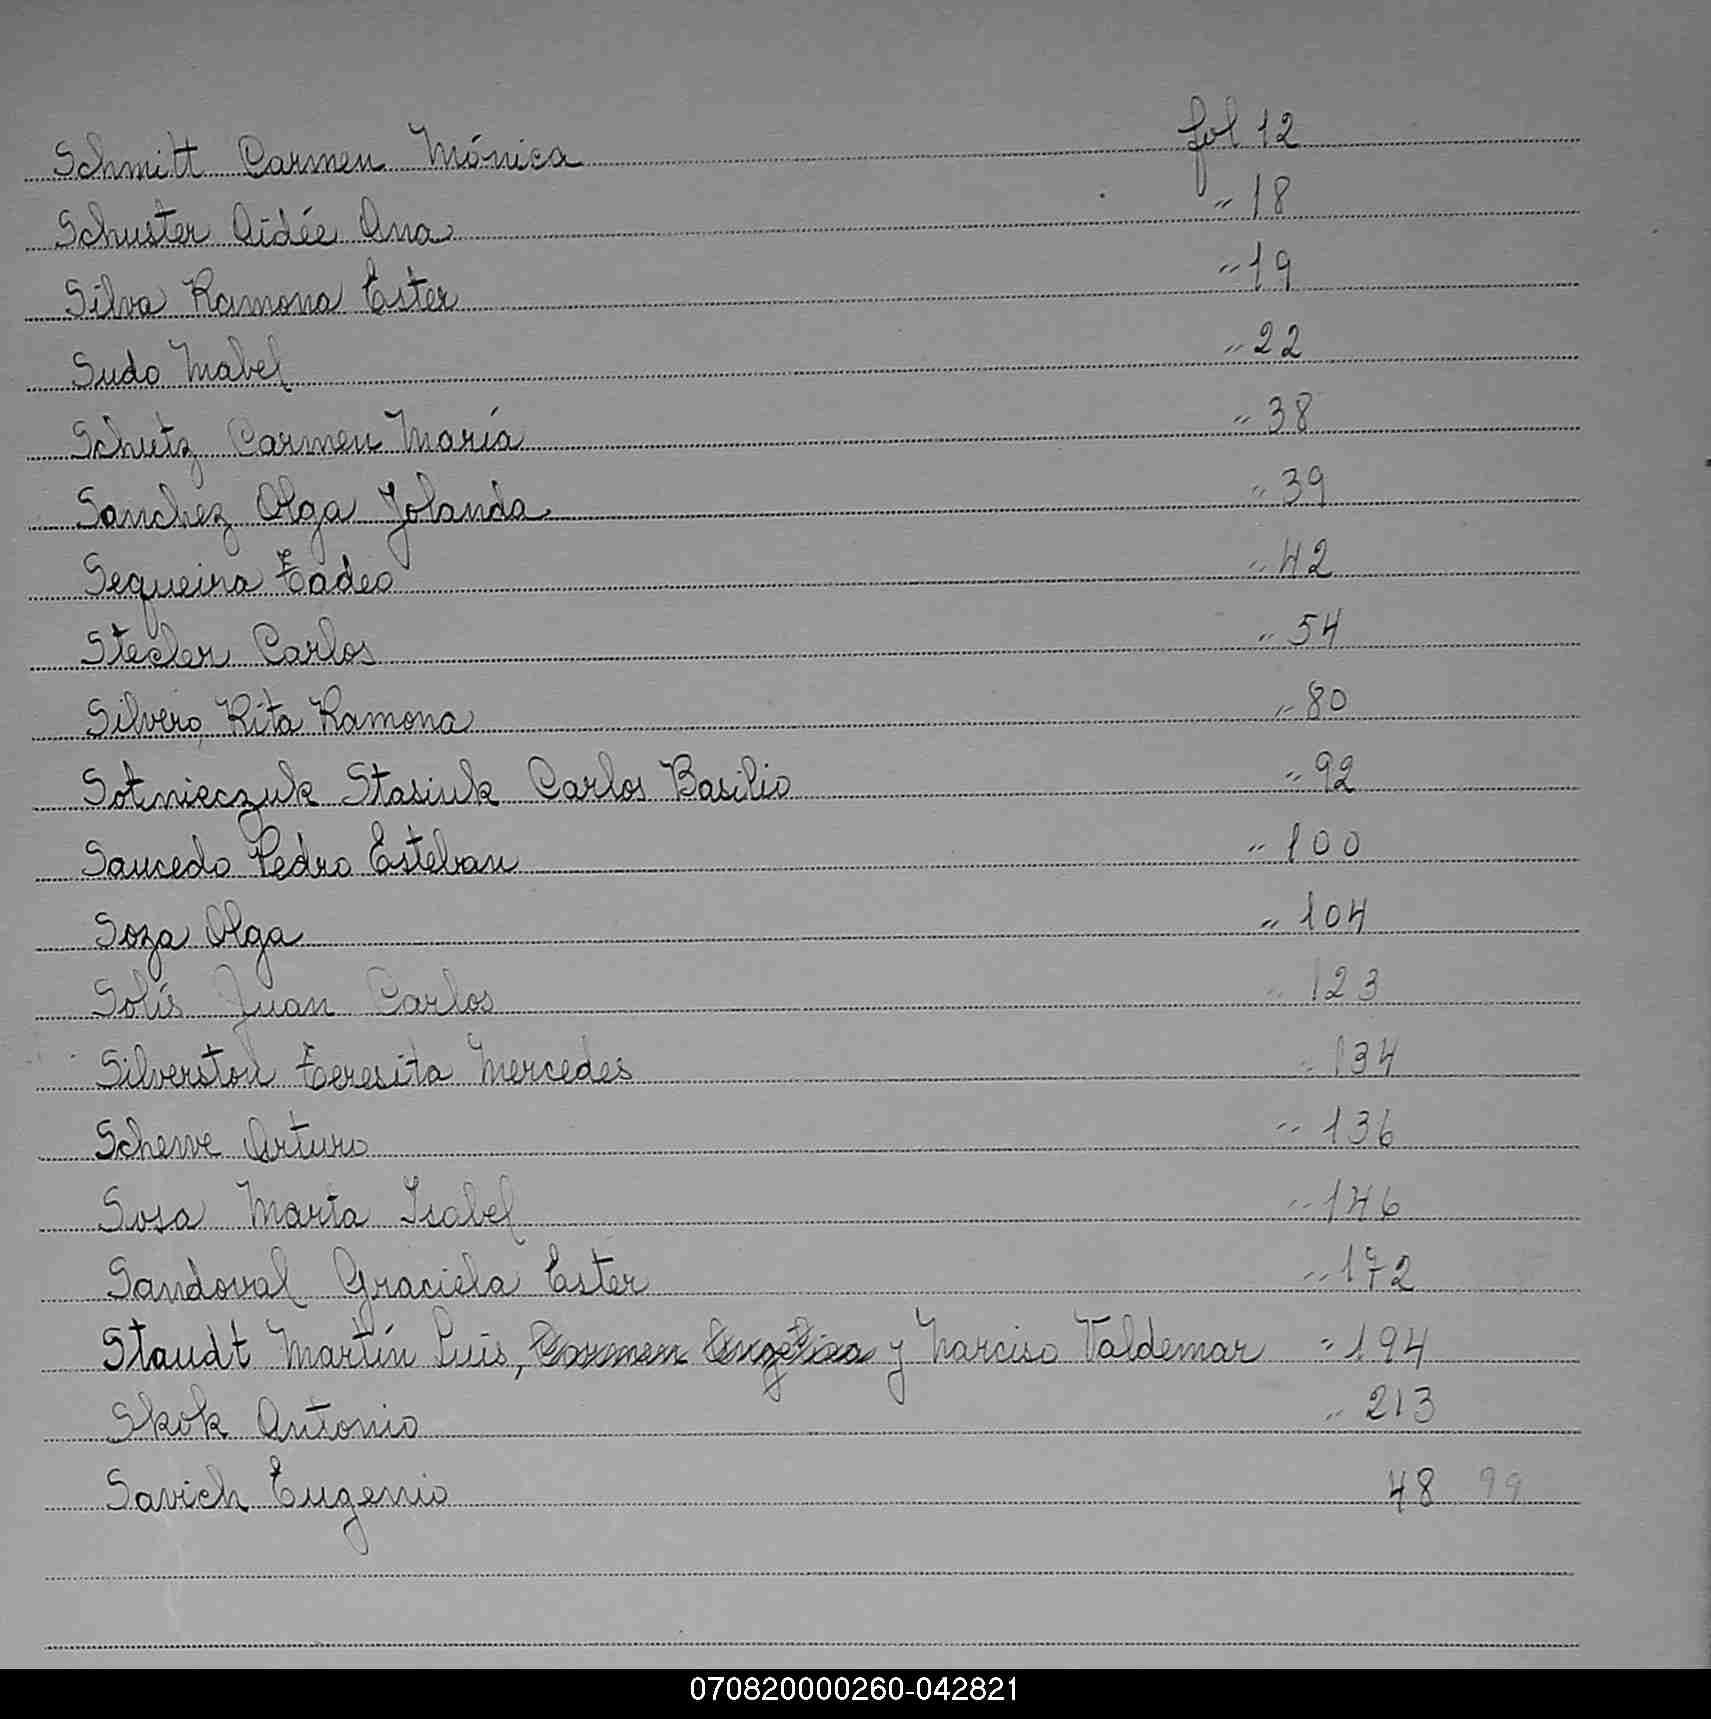 Schmitt Carmen Mónica fol 12
Schuster Aidée Ana " 18
Silva Ramona Ester " 19
Sudo Mabel " 22
Schutz Carmen María " 38
Sanchez Olga Yolanda " 39
Sequeira Tadeo " 42
Stecler Carlos " 54
Silvero, Rita Ramona " 80
Sotnieczuk Stasiuk Carlos Basilio " 92
Saucedo Pedro Esteban " 100
Soza Olga " 104
Solís Juan Carlos " 123
Silverston Teresita Mercedes " 134
Schewe Arturo " 136
Sosa Marta Isabel " 146
Sandoval Graciela Ester " 172
Staudt Martín Luis, Carmen Angélica y Narciso Valdemar " 194
Skok Antonio " 213
Savich Eugenio 48 99
070820000260-042821